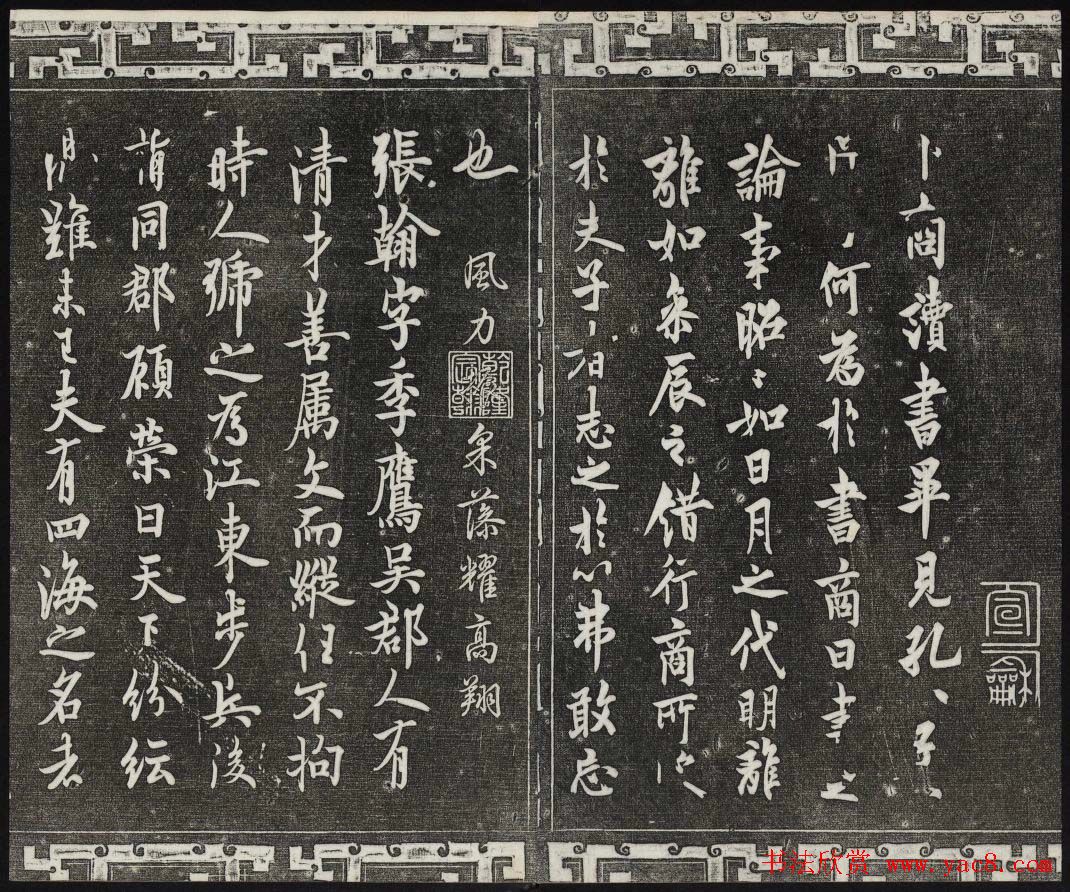 宣和
卜商讀書畢見孔〻子〻
〻何為於書商曰書之
論事昭〻如日月之代明離
離如參辰之錯行商所
於夫子〻者志之於心弗敢忘
也
風力
乾隆宸翰
采藻耀高翔
張翰字季鷹吴郡人有
清才善属文而縱任不拘
時人號之為江東步兵後
謂同郡顧榮曰天下紛紜
禍難未已夫有四海之名者
书法欣赏 www.yac8.com